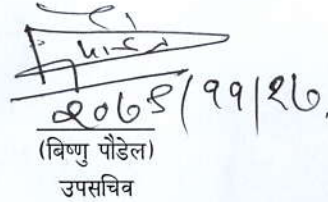 २०७९/११/२७
(बिष्णु पौडेल)
उपसचिव